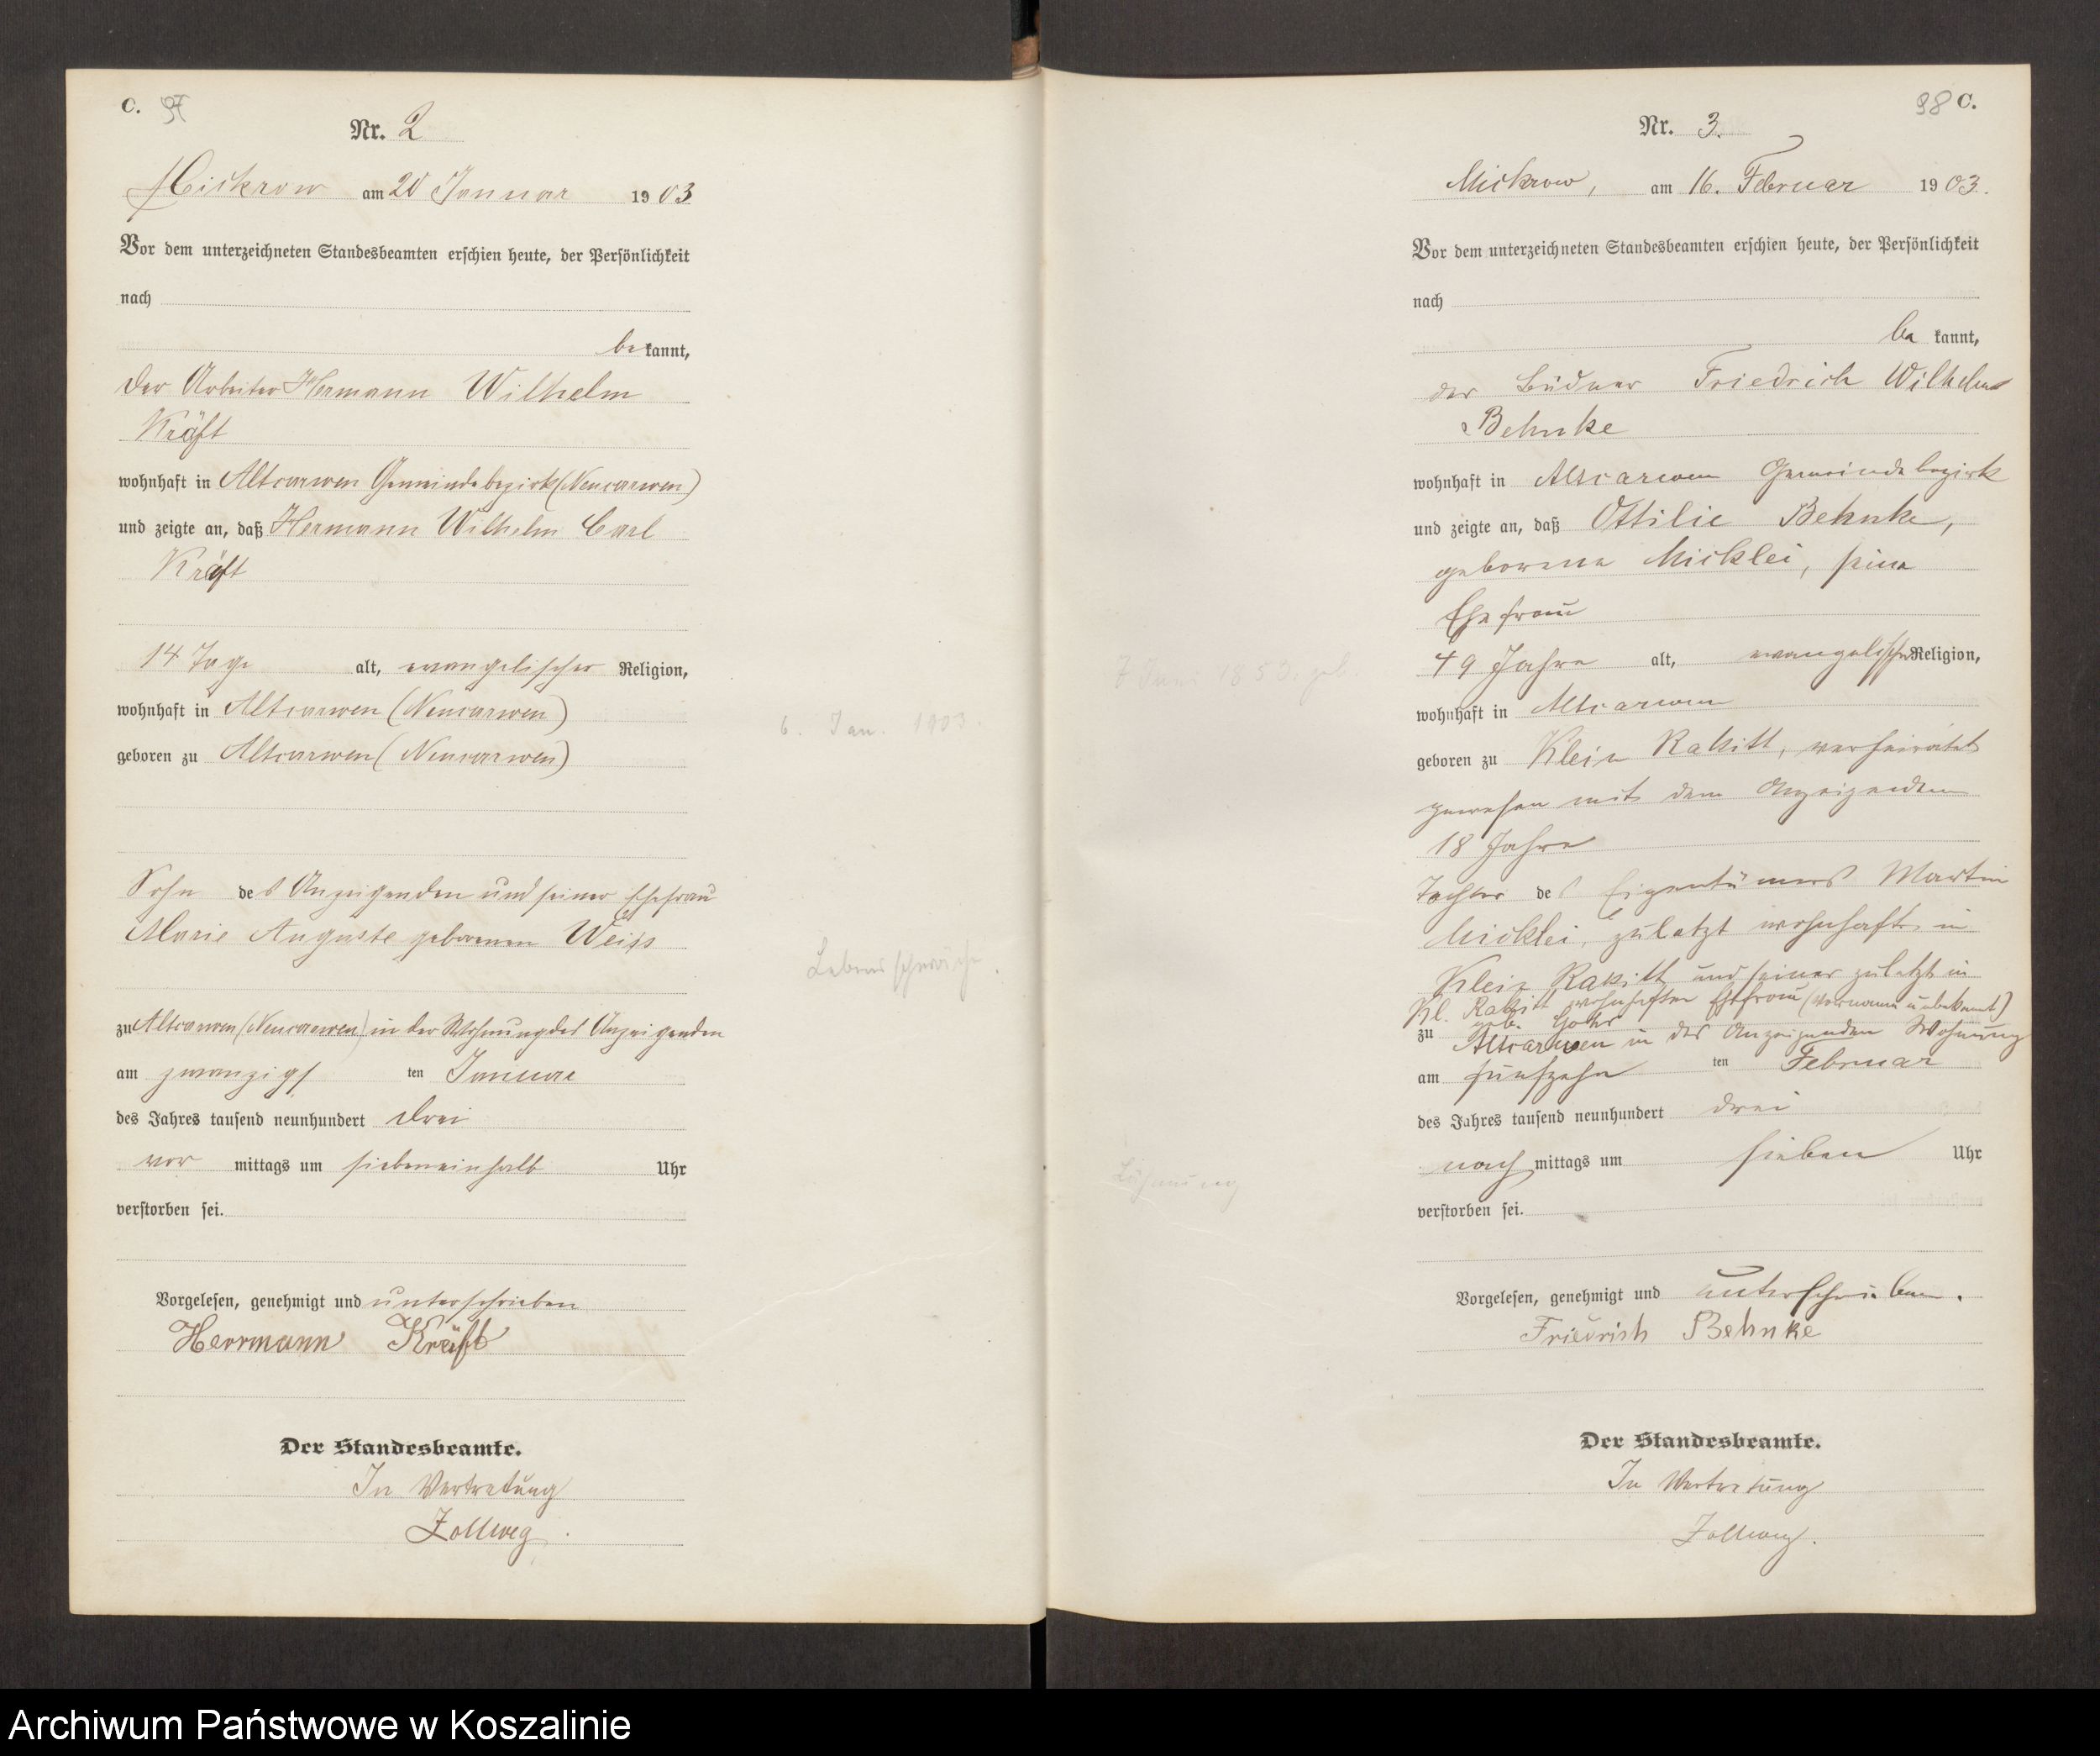 C. 97
Nr. 2
Mickrow am 20 Januar 1903
Vor dem unterzeichneten Standesbeamten erschien heute, der Persönlichkeit
nach
be kannt,
der Arbeiter Hermann Wilhelm
Kräft
wohnhaft in Altcarwen Gemeindebezirk (Neucarwen)
und zeigte an, daß Hermann Wilhelm Carl
Kräft
14 Tage alt, evangelischer Religion,
wohnhaft in Altcarwen (Neucarwen)
geboren zu Altcarwen (Neucarwen)
6. Jan. 1903.
Sohn des Anzeigenden und seiner Ehefrau
Marie Auguste geborenen Weiss
Lebensschwäche.
zu Altcarwen (Neucarwen) in der Wohnung des Anzeigenden
am zwanzigs ten Januar
des Jahres tausend neunhundert drei
vor mittags um siebeneinhalb Uhr
verstorben sei.
Vorgelesen, genehmigt und unterschrieben
Herrmann Kräft
Der Standesbeamte.
In Vertretung
Zollweg.
98 C.
Nr. 3.
Mickrow, am 16. Februar 1903.
Vor dem unterzeichneten Standesbeamten erschien heute, der Persönlichkeit
nach
be kannt,
der Büdner Friedrich Wilhelm
Behnke
wohnhaft in Altcarwen Gemeindebezirk
und zeigte an, daß Ottilie Behnke,
geborene Micklei, seine
Ehefrau
49 Jahre alt, evangelischer Religion,
1850. geb.
wohnhaft in Altcarwen
geboren zu Klein Rakitt, verheiratet
gewesen mit dem Anzeigenden
18 Jahre
Tochter des Eigentümers Martin
Micklei, zuletzt wohnhaft in
Klein Rakitt und seiner zuletzt in
Kl. Rakitt wohnhaften Ehefrau (Vorname unbekannt)
geb.
zu Altcarwen in des Anzeigenden Wohnung
am fünfzehn ten Februar
des Jahres tausend neunhundert drei
nach mittags um sieben Uhr
verstorben sei.
Vorgelesen, genehmigt und unterschrieben.
Friedrich Behnke
Der Standesbeamte.
In Vertretung
Zollweg.
Archiwum Państwowe w Koszalinie